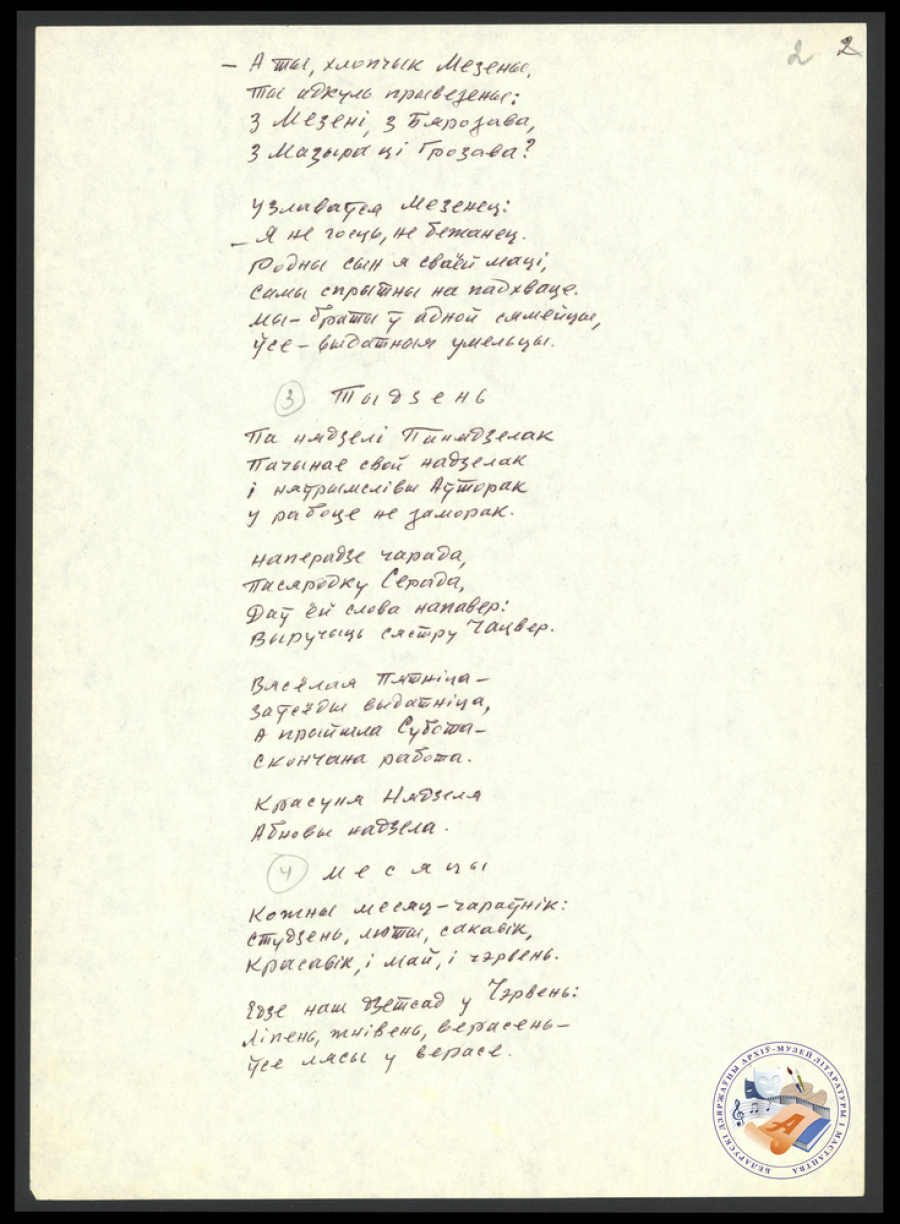 2 2
– А ты, хлопчык Мезены,
ты адкуль прывезены:
З Мезені, з Бярозава,
З Мазыра ці Грозава?
Узлаваўся Мезенец:
– Я не госць, не бежанец.
Родны сын я сваёй маці,
самы спрытны на падхваце.
Мы – браты ў адной сямейцы,
ўсе – выдатныя умельцы.
3 Тыдзень
Па нядзелі Панядзелак
Пачынае свой надзелак
і няўрымслівы Аўторак
у рабоце не заморак.
Наперадзе чарада,
Пасярэдку Серада,
Даў ёй слова напавер:
Выручыць сястру Чацвер.
Вясёлая Пятніца –
Заўсёды выдатніца,
А прыйшла Субота –
скончана работа.
Красуня Нядзеля
Абновы надзела.
4 Месяцы
Кожны месяц – чараўнік:
студзень, люты, сакавік,
Красавік, і май, і чэрвень.
Едзе наш дзетсад у Чэрвень:
Ліпень, жнівень, верасень –
ўсе лясы у верасе.
БЕЛАРУСКІ ДЗЯРЖАЎНЫ АРХІЎ-МУЗЕЙ ЛІТАРАТУРЫ І МАСТАЦТВА